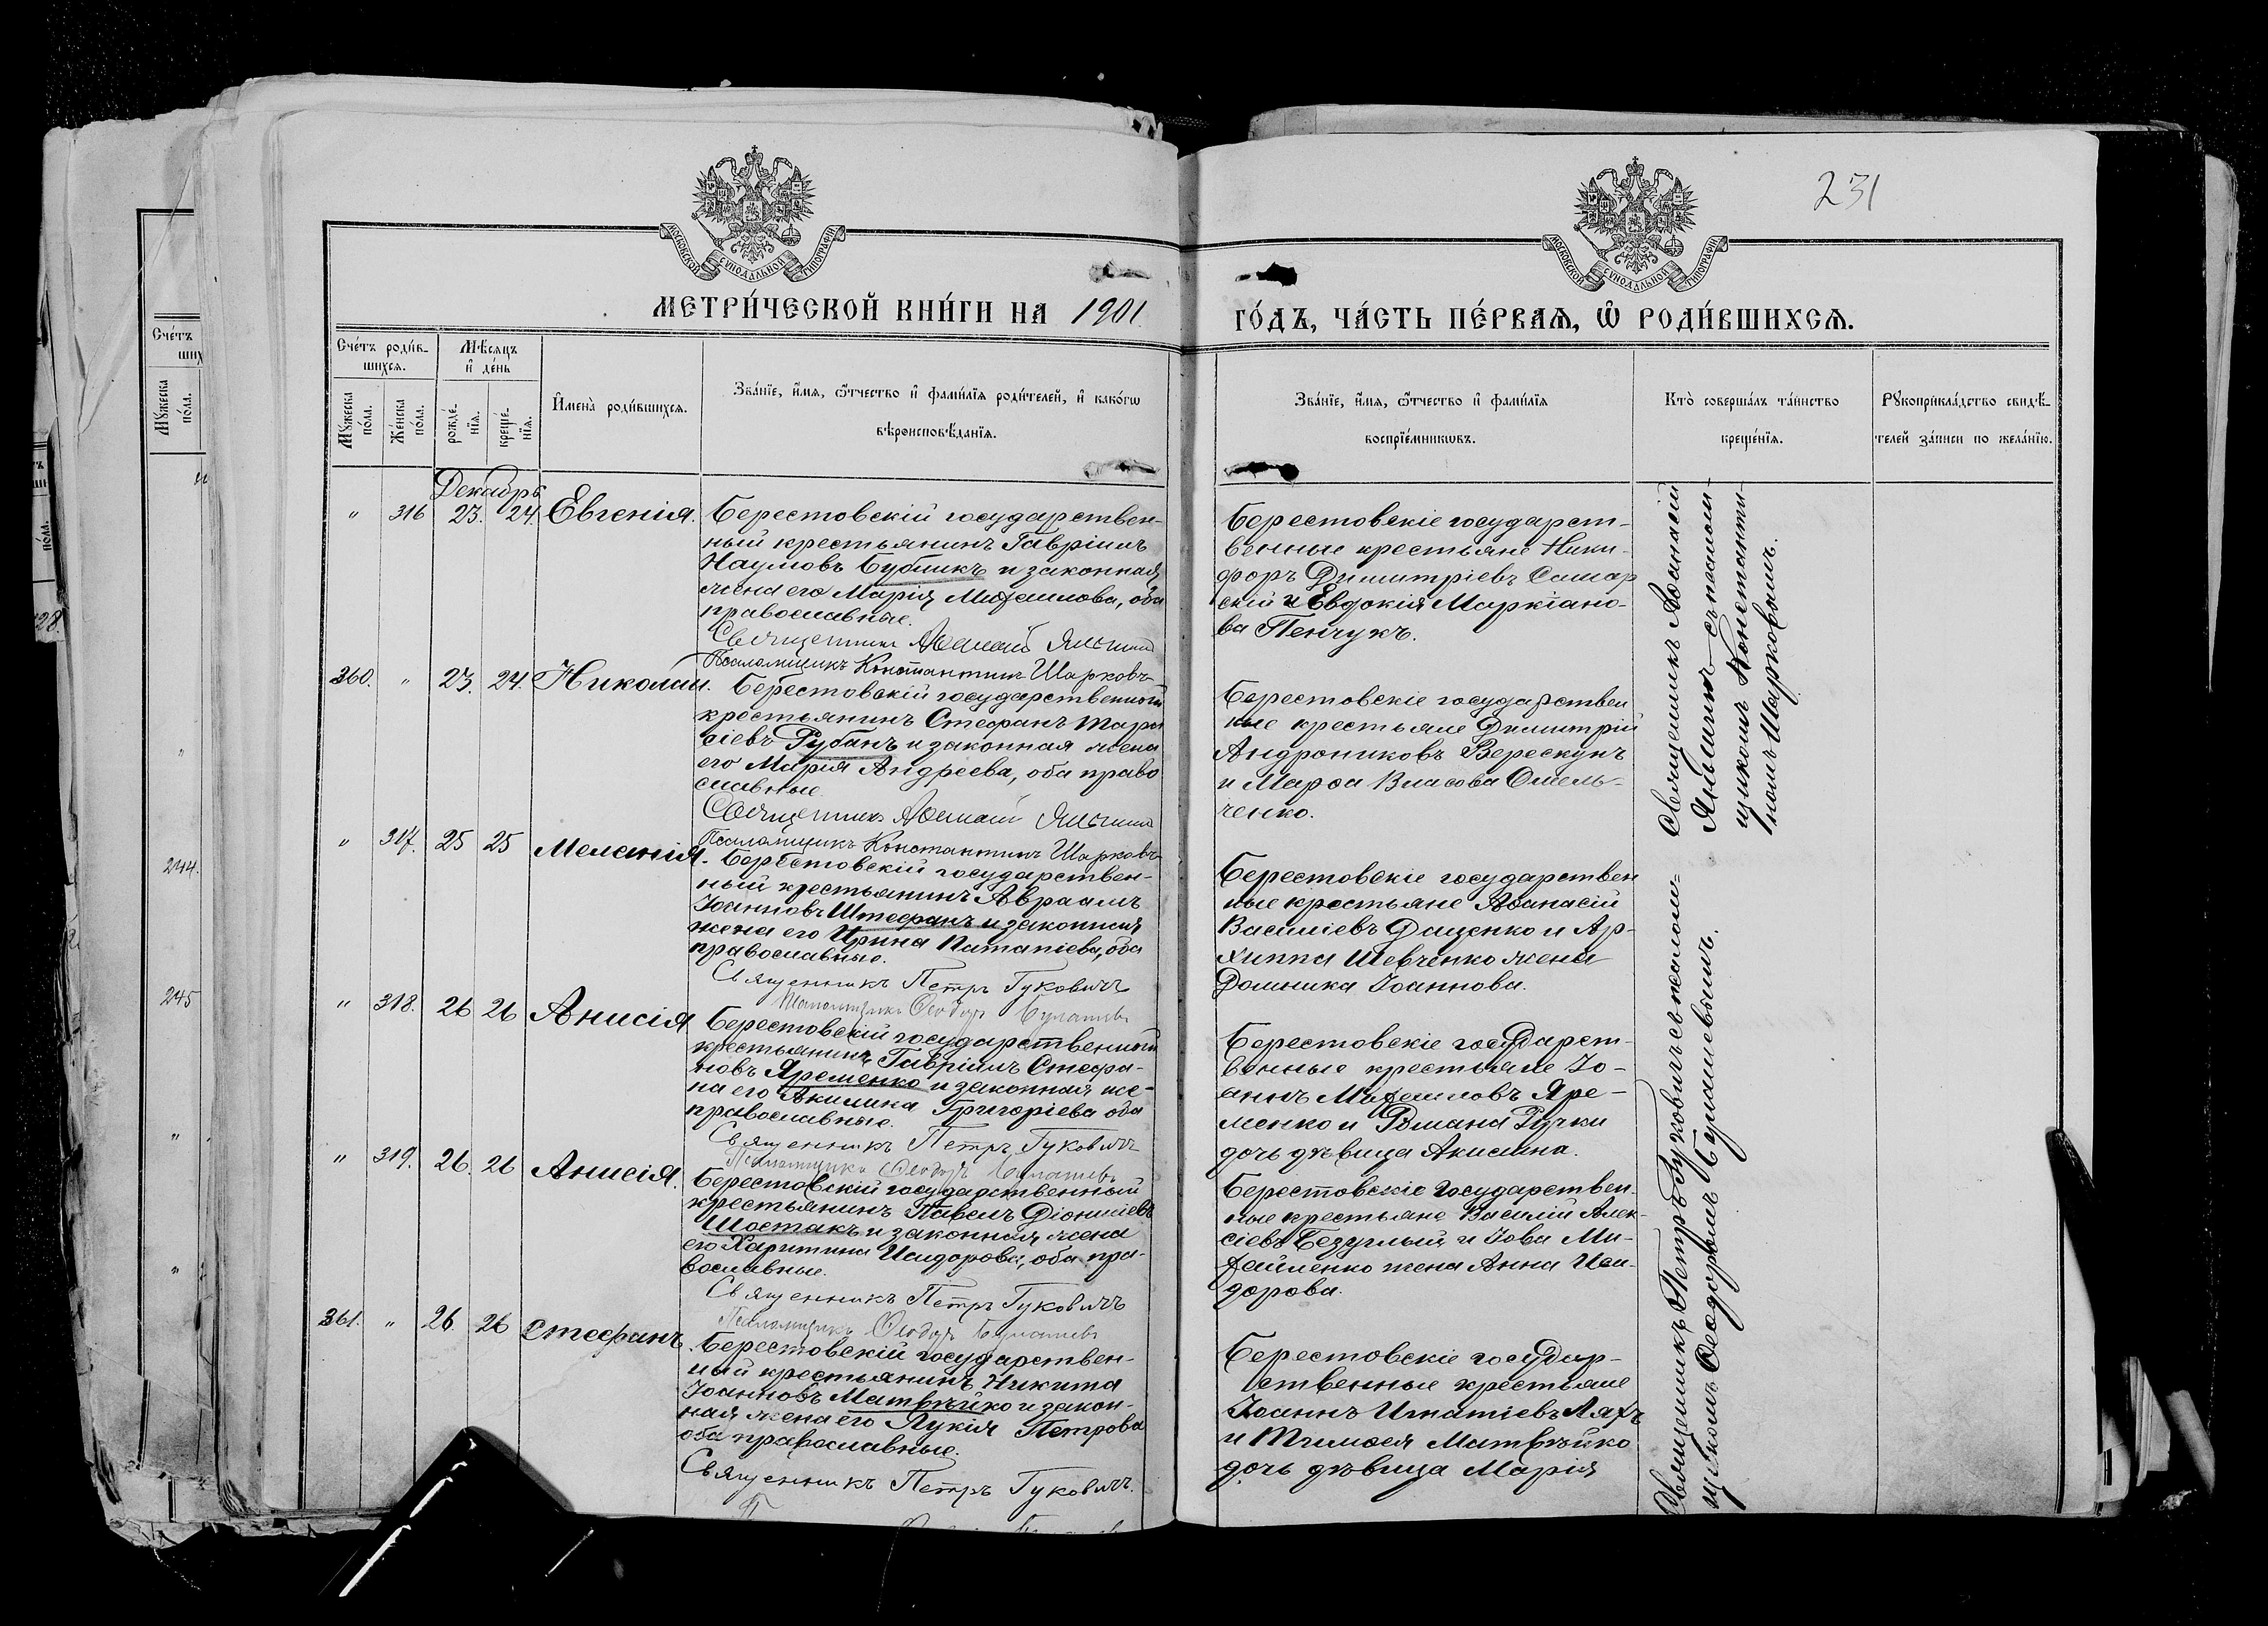 231
МОСКОВСКОЙ СѴНОДАЛЬНОЙ ТИПОГРАФІИ
МОСКОВСКОЙ СѴНОДАЛЬНОЙ ТИПОГРАФІИ
МЕТРИ́ЧЕСКОЙ КНИ́ГИ НА 1901 ГО́ДЪ, ЧА́СТЬ ПЕ́РВАѦ, Ѡ҆ РОДИ́ВШИХСѦ.
Сче́тъ роди́в-
шихсѧ.
Мꙋ́жеска по́ла.
Же́нска по́ла.
Мѣ́сѧцъ и҆ де́нь
рожде́-нїѧ.
креще́-нїѧ.
И҆мена̀ роди́вшихсѧ.
Зва́нїе, и҆́мѧ, ѻ҆́тчество и҆ фами́лїѧ роди́телей, и҆ како́гѡ
вѣроисповѣ́данїѧ.
Зва́нїе, и҆́мѧ, ѻ҆́тчество и҆ фами́лїѧ
воспрїе́мникѡвъ.
Кто̀ соверша́лъ та́инство
креще́нїѧ.
Рꙋкоприкла́дство свидѣ́-
телей за́писи по жела́нїю.
Декабрь
" 316 23. 24. Евгенія.
Берестовскій государствен-
ный крестьянинъ Гавріилъ
Наумовъ Бубликъ и законная
жена его Марія Михаилова, оба
православные.
Священникъ Аѳанасій Яльчинъ
Псаломщикъ Константинъ Шарковъ
Берестовскіе государст-
венные крестьяне Ники-
форъ Димитріевъ Самар
скій и Евдокія Маркіано-
ва Пенчукъ.
360. " 23. 24. Николай.
Берестовскій государственный
крестьянинъ Стефанъ Тара
сіевъ Рубанъ и законная жена
его Марія Андреева, оба право
славные.
Священникъ Аѳанасій Яльчинъ
Псаломщикъ Константинъ Шарковъ
Берестовскіе государствен
ные крестьяне Димитрій
Андрониковъ Верескунъ
и Марѳа Власова Омель-
ченко.
Священникъ Аѳанасій
Яльчинъ съ псалом-
щикомъ Константи-
номъ Шарковымъ.
" 317. 25 25 Меланія.
Берестовскій государствен-
ный крестьянинъ Авраамъ
Іоанновъ Штефанъ и законная
жена его Ирина Патапіева, оба
православные.
Священникъ Петръ Гуковичъ
Псаломщикъ Ѳеодоръ Булашевъ
Берестовскіе государствен
ные крестьяне Аѳанасій
Василіевъ Даценко и Ар-
хиппа Шевченко жена
Домника Іоаннова.
" 318. 26 26 Анисія
Берестовскій государственный
крестьянинъ Гавріилъ Стефа-
новъ Яременко и законная же-
на его Акилина Григоріева оба
православные.
Священникъ Петръ Гуковичъ
Псаломщикъ Ѳеодоръ Булашевъ
Берестовскіе государст-
венные крестьяне Іо-
аннъ Михаиловъ Яре-
менко и Романа Гучки
дочь дѣвица Акилина.
" 319. 26. 26 Анисія.
Берестовскій государственный
крестьянинъ Павелъ Діонисіевъ
Шостакъ и законная жена
его Харитина Исидорова, оба пра-
вославные.
Священникъ Петръ Гуковичъ
Псаломщикъ Ѳеодоръ Булашевъ
Берестовскіе государствен-
ные крестьяне Василій Алек-
сіевъ Безуглый и Іова Ми-
хайленко жена Анна Иси-
дорова.
361. " 26. 26 Стефанъ.
Берестовскій государствен-
ный крестьянинъ Никита
Іоанновъ Матвѣйко и закон-
ная жена его Лукія Петрова
оба православные.
Священникъ Петръ Гуковичъ.
Берестовскіе государ-
ственные крестьяне
Іоаннъ Игнатіевъ Ляхъ
и Тимоѳея Матвѣйко
дочь дѣвица Марія
Священникъ Петръ Гуковичъ съ псалом-
щикомъ Ѳеодоромъ Булашевымъ.
Сче́тъ
ших
Мꙋ́жеска по́ла.
244.
245